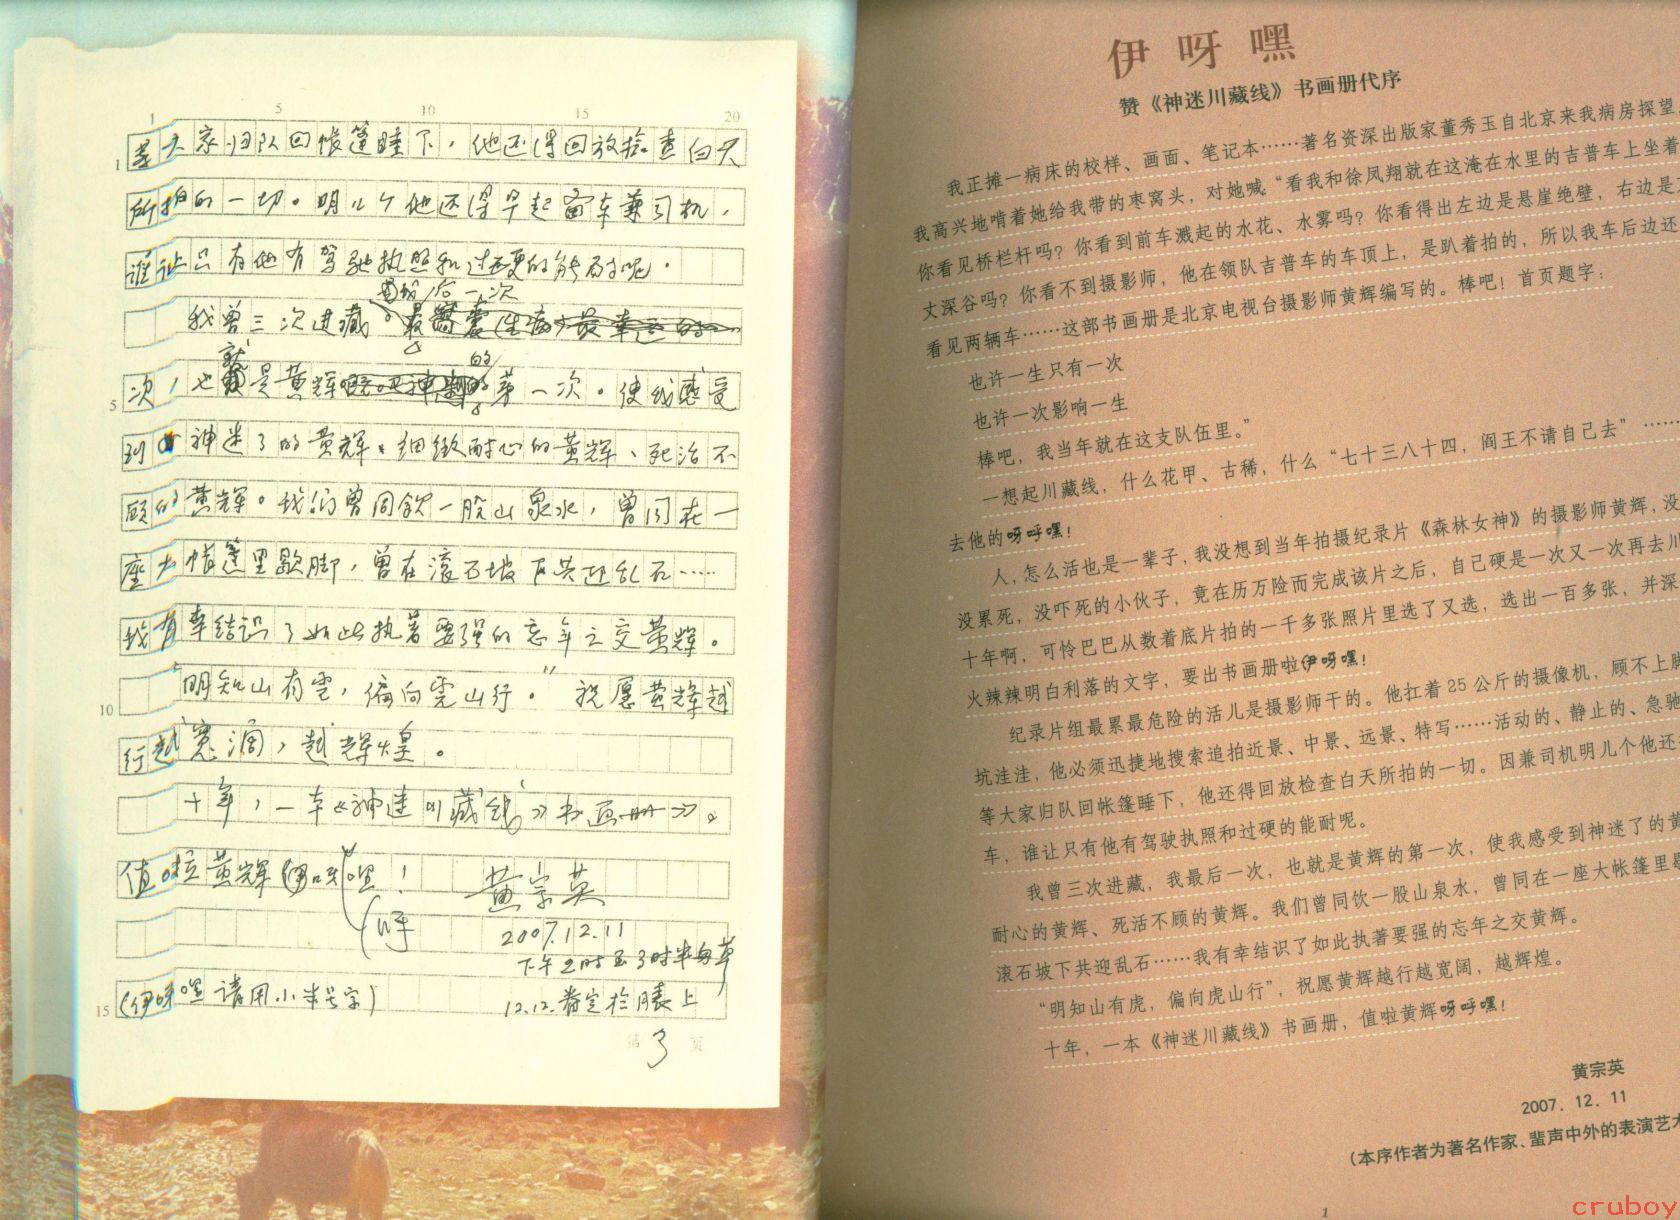 1 5 10 15 20
1 等大家归队回帐篷睡下，他还得回放检查白天
所拍的一切。明儿个他还得早起 车兼司机，
谁让只有他有驾驶执照和过硬的能耐呢。
我最后一次
我曾三次进藏。
就 的
5 次，也是黄辉 第一次。使我感受
到 神迷了的黄辉、细致耐心的黄辉、死活不
顾的黄辉。我们曾同饮一股山泉水，曾同在一
座大帐篷里歇脚，曾在滚石坡下共迎乱石……
我有幸结识了如此执著要强的忘年之交黄辉。
10 “明知山有虎，偏向虎山行。”祝愿黄辉越
行越宽阔，越辉煌。
十年，一本《神迷川藏线》书画册》。
值啦黄辉 呀 嘿！
呼
黄宗英
2007.12.11
下午2时至3时半
15 （伊呀嘿请用小 号字）
12.12. 定于 上
第 3 页
伊呀嘿
赞《神迷川藏线》书画册代序
我正摊一病床的校样、画面、笔记本……著名资深出版家董秀玉自北京来我病房探望
我高兴地啃着她给我带的枣窝头，对她喊：“看我和徐凤翔就在这淹在水里的吉普车上坐着
你看见桥栏杆吗？你看到前车溅起的水花、水雾吗？你看得出左边是悬崖绝壁，右边是
丈深谷吗？你看不到摄影师，他在领队吉普车的车顶上，是趴着拍的，所以我车后边还
看见两辆车……这部书画册是北京电视台摄影师黄辉编写的。棒吧！首页题字：
也许一生只有一次
也许一次影响一生
棒吧，我当年就在这支队伍里。”
一想起川藏线，什么花甲、古稀，什么“七十三八十四，阎王不请自己去”……
去他的呀呼嘿！
人，怎么活也是一辈子，我没想到当年拍摄纪录片《森林女神》的摄影师黄辉，没
没累死，没吓死的小伙子，竟在历万险而完成该片之后，自己硬是一次又一次再去川
十年啊，可怜巴巴从数着底片拍的一千多张照片里选了又选，选出一百多张，并深
火辣辣明白利落的文字，要出书画册啦伊呀嘿！
纪录片组最累最危险的活儿是摄影师干的。他扛着25公斤的摄像机，顾不上脚
坑洼洼，他必须迅捷地搜索追拍近景、中景、远景、特写……活动的、静止的、急驰
等大家归队回帐篷睡下，他还得回放检查白天所拍的一切。因兼司机明儿个他还
车，谁让只有他有驾驶执照和过硬的能耐呢。
我曾三次进藏，我最后一次，也就是黄辉的第一次，使我感受到神迷了的黄
耐心的黄辉、死活不顾的黄辉。我们曾同饮一股山泉水，曾同在一座大帐篷里歇
滚石坡下共迎乱石……我有幸结识了如此执著要强的忘年之交黄辉。
“明知山有虎，偏向虎山行”，祝愿黄辉越行越宽阔，越辉煌。
十年，一本《神迷川藏线》书画册，值啦黄辉呀呼嘿！
黄宗英
2007．12．11
（本序作者为著名作家、蜚声中外的表演艺术
1
cruboy